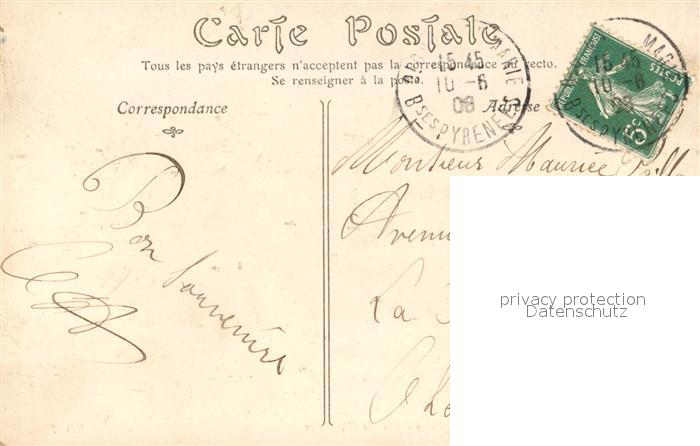 Carte Postale
Tous les pays étrangers n'acceptent pas la correspondance au recto.
Se renseigner à la poste.
Correspondance
Adresse
15 45
10 - 6
08
Bses PYRENEES
REPUBLIQUE FRANÇAISE
POSTES
5c
15 45
10 - 6
08
Bses PYRENEES
Bon
souvenir
Monsieur Maurice
Avenue
La
privacy protection
Datenschutz